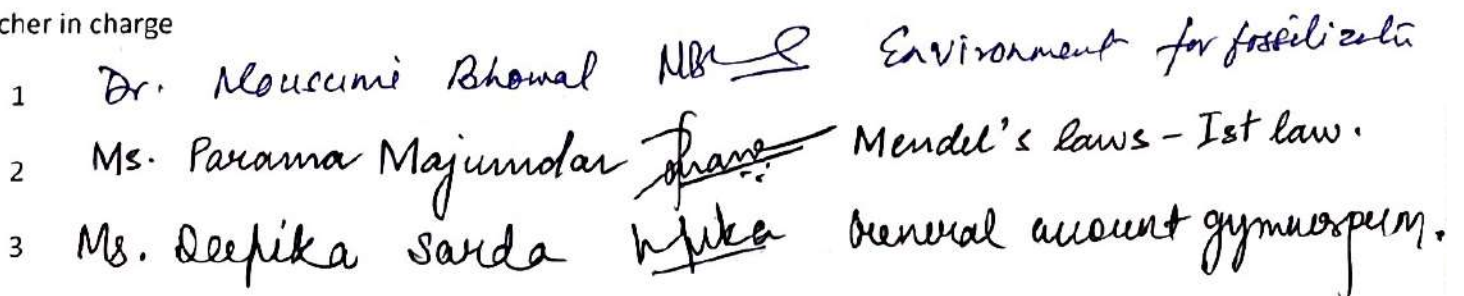 cher in charge
1 Dr. Mousumi Bhowal Environment for fossilizatn
2 Ms. Parama Majumdar Mendel's laws - Ist law.
3 Ms. Deepika Sarda General account gymnosperm.